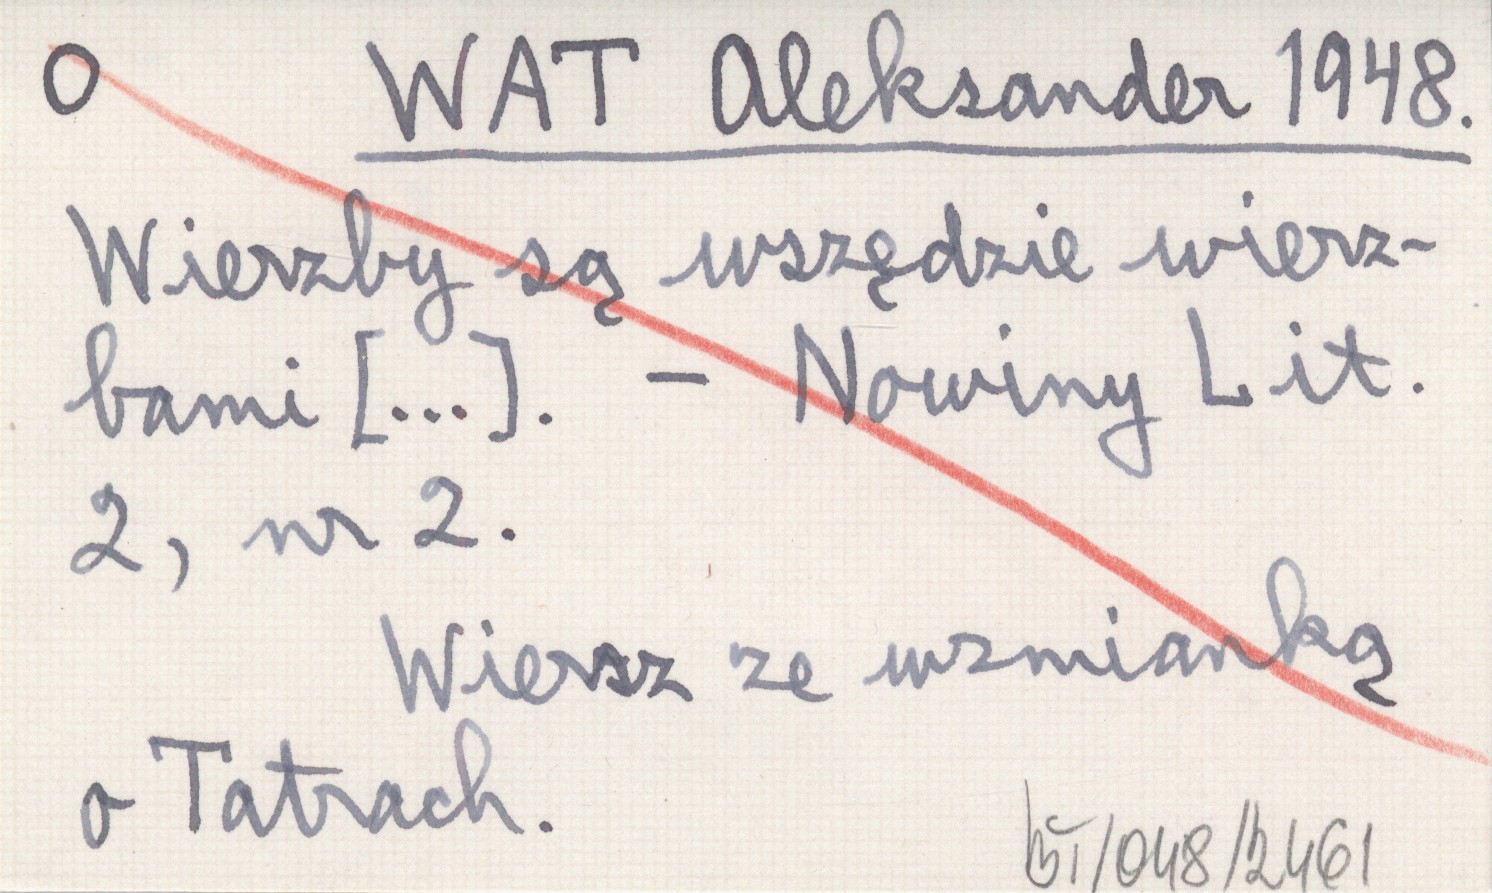 O WAT Aleksander 1948.
Wierzby są wszędzie wierz-
bami [...]. - Nowiny Lit.
2, nr 2.
Wiersz ze wzmianką
o Tatrach.
/048/2461